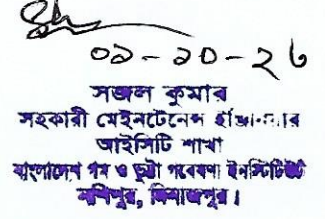 ০১-১০-২৩
সজল কুমার
সহকারী মেইনটেনেন্স ইঞ্জিনিয়ার
আইসিটি শাখা
বাংলাদেশ গম ও ভুট্টা গবেষণা ইনস্টিটিউট
নশিপুর, দিনাজপুর।